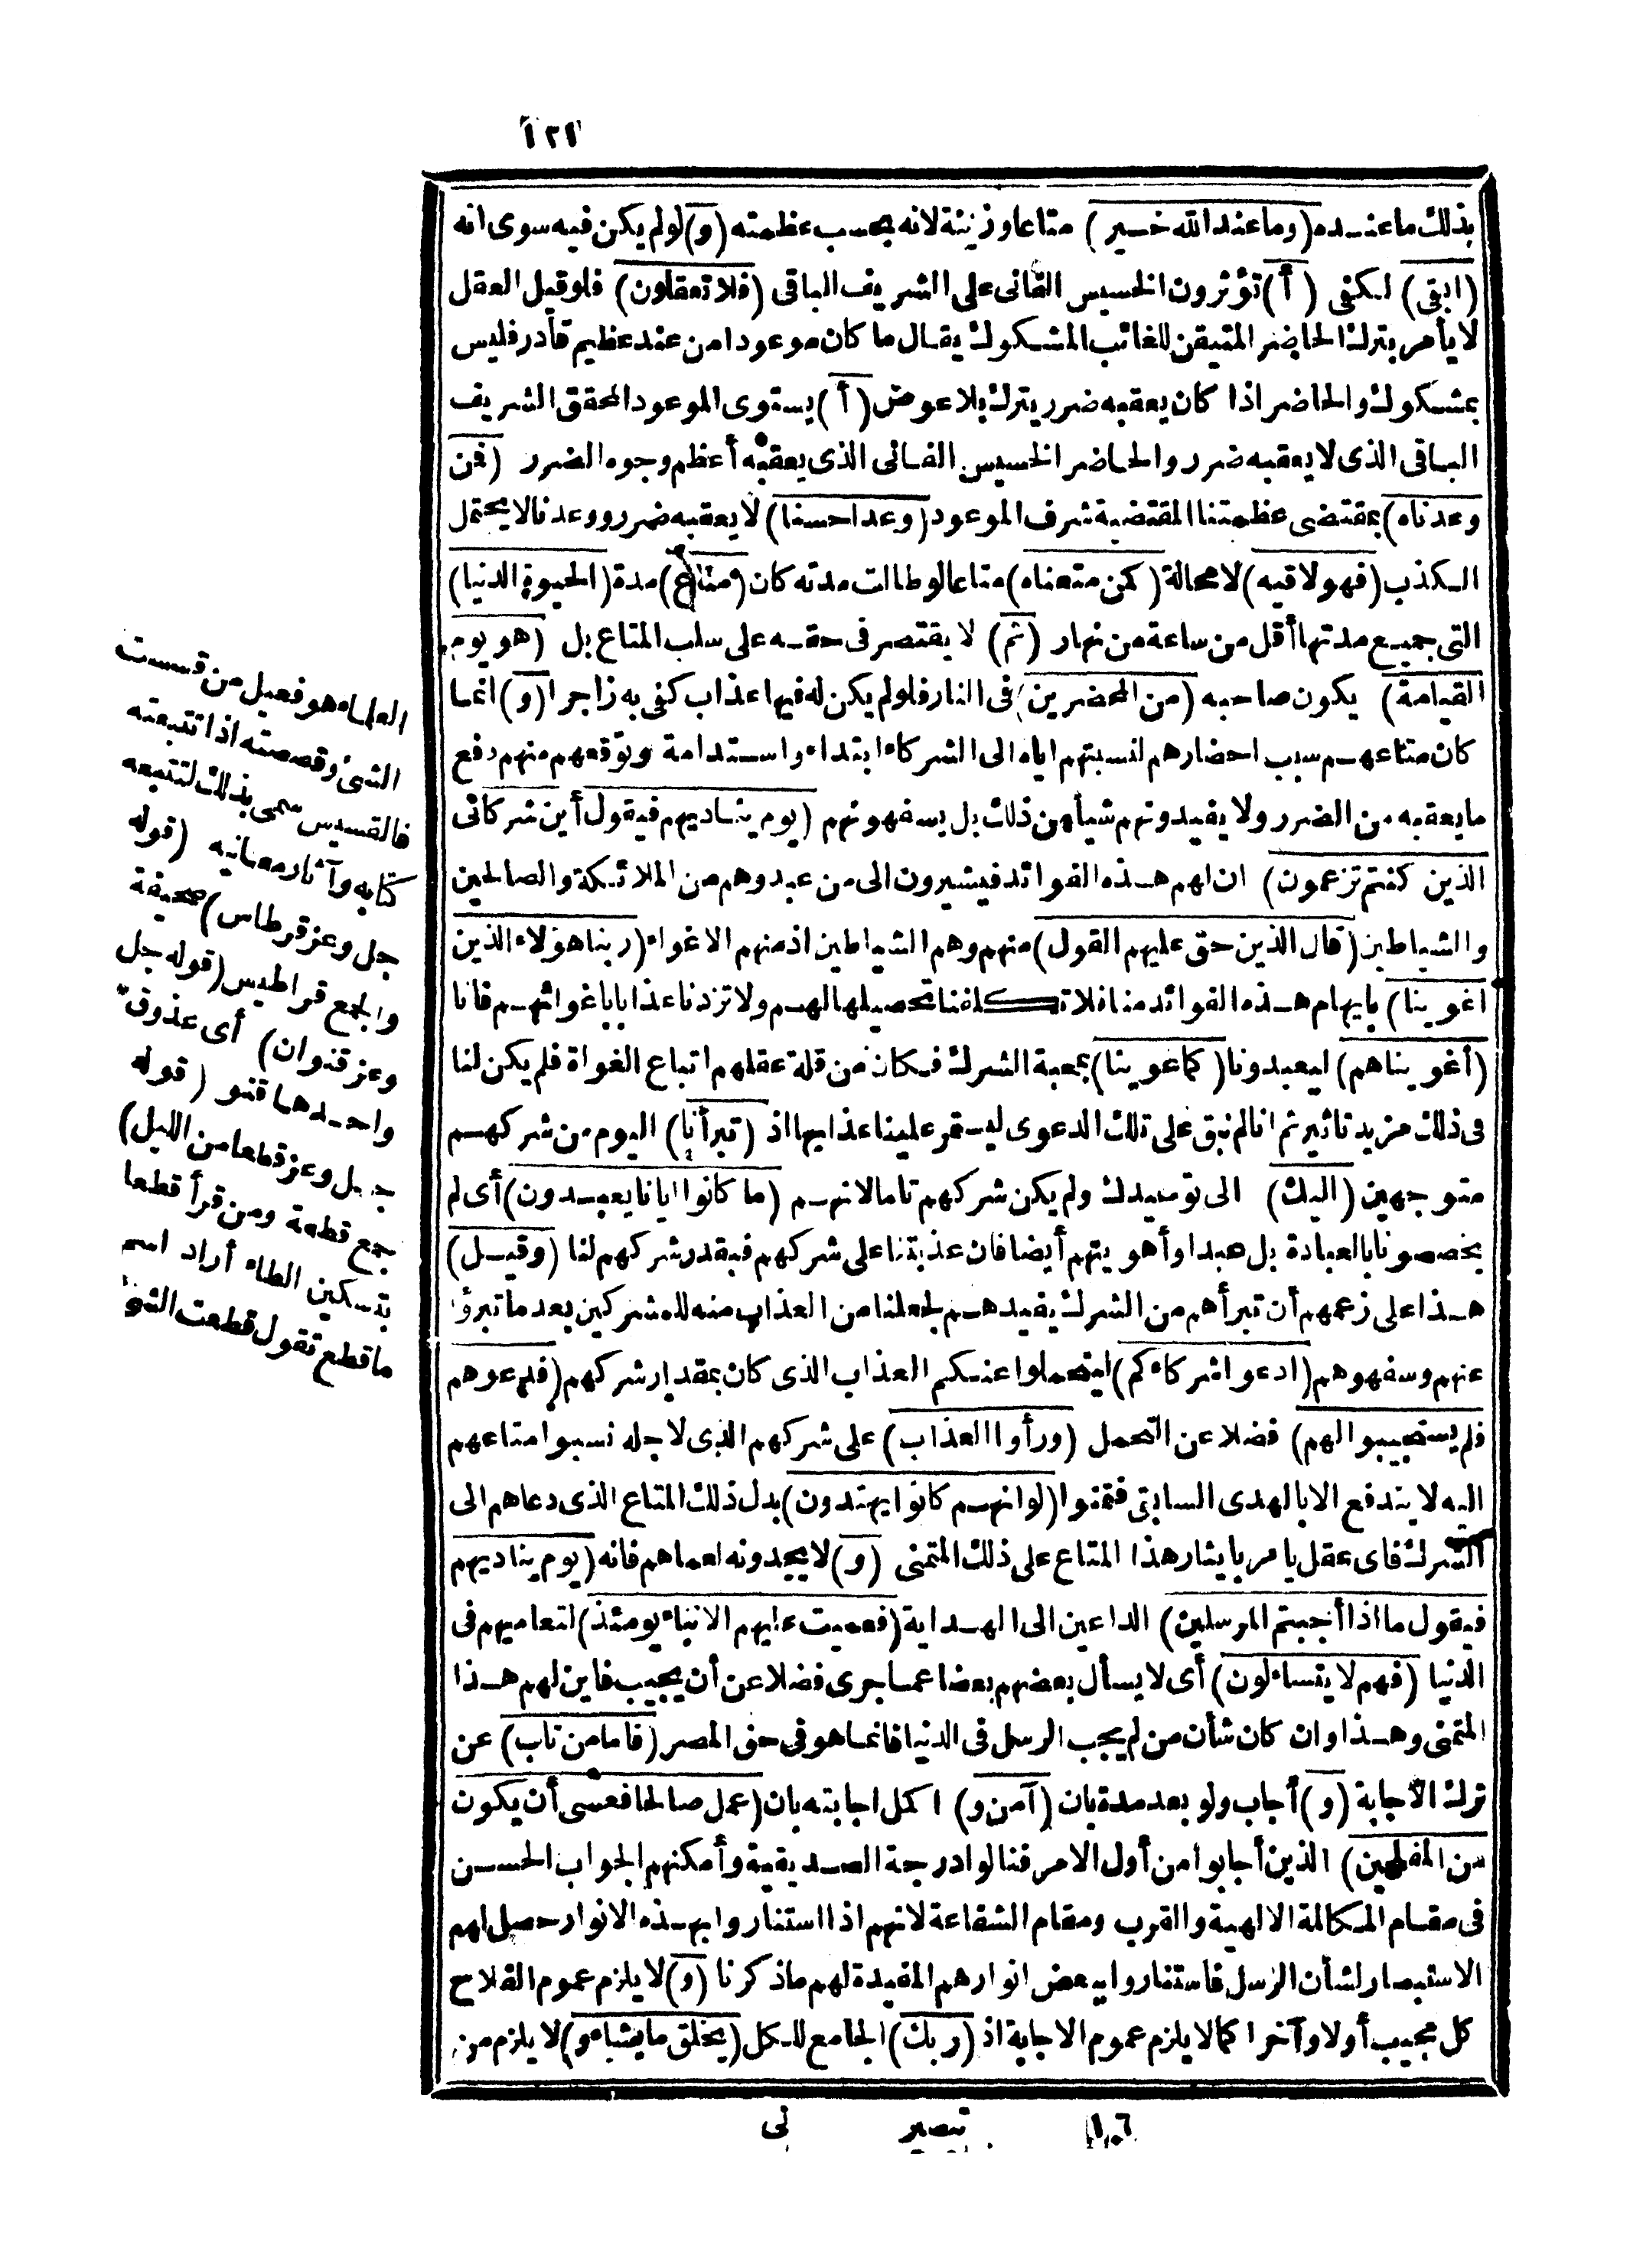 ١٢١
بذلك ما عنده (وما عند الله خير) متاعا وزينة لانه بحسب عظمته (و) لو لم يكن فيه سوى انه
(ابقى) لكفى (أ) تؤثرون الخسيس الفانى على الشريف الباقى (فلا تعقلون) فلو قيل العقل
لا يأمر بترك الحاضر المتيقن للغائب المشكوك يقال ما كان موعودا من عند عظيم قادر فليس
بمشكوك والحاضر اذا كان يعقبه ضرر يترك بلا عوض (أ) يستوى الموعود المحقق الشريف
الباقى الذى لا يعقبه ضرر والحاضر الخسيس الفانى الذى يعقبه أعظم وجوه الضرر (فمن
وعدناه) بمقتضى عظمتنا المقتضية شرف الموعود (وعدا حسنا) لا يعقبه ضرر ووعدنا لا يحتمل
الكذب (فهو لاقيه) لا محالة (كمن متعناه) متاعا لو طالت مدته كان (متاع) مدة (الحيوة الدنيا)
التى جميع مدتها أقل من ساعة من نهار (ثم) لا يقتصر فى حقه على سلب المتاع بل (هو يوم
القيامة) يكون صاحبه (من المحضرين) فى النار فلو لم يكن له فيها عذاب كفى به زاجرا (و) انما
كان متاعهم سبب احضارهم لنسبتهم اياه الى الشركاء ابتداء واستدامة وتوقعهم منهم دفع
ما يعقبه من الضرر ولا يفيدونهم شيأ من ذلك بل يسفهونهم (يوم يناديهم فيقول أين شركائى
الذين كنتم تزعمون) ان لهم هذه الفوائد فيشيرون الى من عبدوهم من الملائكة والصالحين
والشياطين (قال الذين حق عليهم القول) منهم وهم الشياطين اذ منهم الاغواء (ربنا هؤلاء الذين
اغوينا) بايهام هذه الفوائد منا فلا تكلفنا تحصيلها لهم ولا تزدنا عذابا باغوائهم فانا
(أغويناهم) ليعبدونا (كما غوينا) بمحبة الشرك فكان من قلة عقلهم اتباع الغواة فلم يكن لنا
فى ذلك مزيد تاثير ثم انا لم نبق على تلك الدعوى ليستمر علينا عذابها اذ (تبرأنا) اليوم من شركهم
متوجهين (اليك) الى توحيدك ولم يكن شركهم تاما لانهم (ما كانوا ايانا يعبدون) أى لم
يخصصونا بالعبادة بل عبدوا أهويتهم أيضا فان عذبتنا على شركهم فبقدر شركهم لنا (وقيل)
هذا على زعمهم أن تبرأهم من الشرك يفيدهم لجعلنا من العذاب منه للمشركين بعد ما تبرؤا
عنهم وسفهوهم (ادعوا شركاءكم) ليتحملوا عنكم العذاب الذى كان بمقدار شركهم (فدعوهم
فلم يستجيبوا لهم) فضلا عن التحمل (ورأوا العذاب) على شركهم الذى لاجله نسبوا متاعهم
اليه لا يندفع الا بالهدى السابق فتمنوا (لو انهم كانوا يهتدون) بدل ذلك المتاع الذى دعاهم الى
الشرك فاى عقل يامر بايثار هذا المتاع على ذلك المتمنى (و) لا يجدونه لعماهم فانه (يوم يناديهم
فيقول ماذا أجبتم المرسلين) الداعين الى الهداية (فعميت عليهم الانباء يومئذ) لتعاميهم فى
الدنيا (فهم لا يتساءلون) أى لا يسأل بعضهم بعضا عما جرى فضلا عن أن يجيب فاين لهم هذا
المتمنى وهذا وان كان شأن من لم يجب الرسل فى الدنيا فانما هو فى حق المصر (فاما من تاب) عن
ترك الاجابة (و) أجاب ولو بعد مدة بان (آمن و) اكمل اجابته بان (عمل صالحا فعسى أن يكون
من المفلحين) الذين أجابوا من أول الامر فنالوا درجة الصديقية وأمكنهم الجواب الحسن
فى مقام المكالمة الالهية والقرب ومقام الشفاعة لانهم اذا استناروا بهذه الانوار حصل لهم
الاستبصار لشأن الرسل فاستناروا ببعض انوارهم المفيدة لهم ما ذكرنا (و) لا يلزم عموم الفلاح
كل مجيب أولا وآخرا كما لا يلزم عموم الاجابة اذ (ربك) الجامع للكل (يخلق ما يشاء و) لا يلزم من
١٠٦ تبصير نى
العلماء هو فعيل من قسست
الشئ وقصصته اذا تتبعته
فالقسيس سمى بذلك لتتبعه
كتابه وآثار معانيه (قوله
جل وعز قرطاس) صحيفة
والجمع قراطيس (قوله جل
وعز قنوان) أى عذوق
واحدها قنو (قوله
جل وعز قطعا من الليل)
جمع قطعة ومن قرأ قطعا
بتسكين الطاء أراد اسم
ما قطع تقول قطعت الشئ